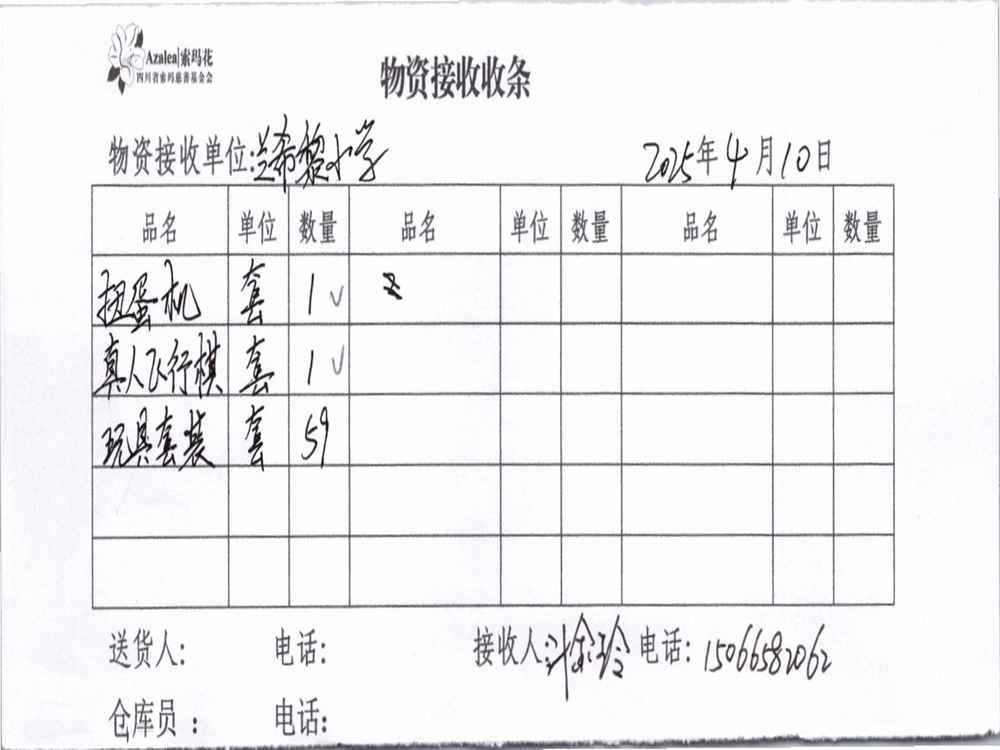 Azalea|索玛花
四川省索玛慈善基金会
物资接收收条
物资接收单位:兰希黎小学 2025年4月10日
品名 单位 数量 品名 单位 数量 品名 单位 数量
扭蛋机 套 1 ✓
真人飞行棋 套 1 ✓
玩具套装 套 59
送货人: 电话: 接收人: 电话: 15066582062
仓库员 : 电话: